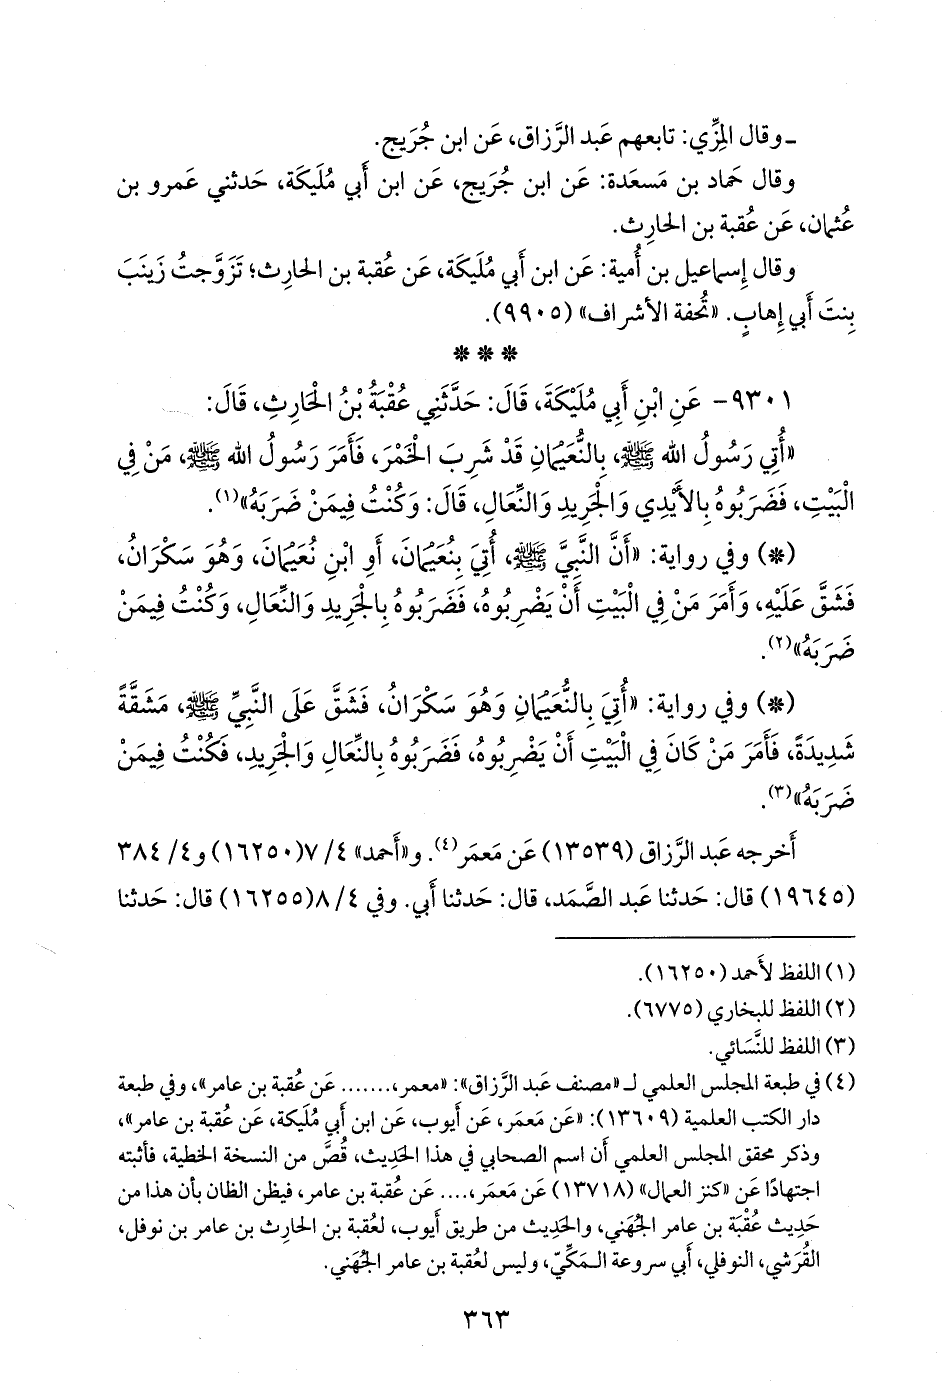 ـ وقال المِزِّي: تابعهم عَبد الرَّزاق، عَن ابن جُرَيج.
وقال حَماد بن مَسعَدة: عَن ابن جُرَيج، عَن ابن أَبي مُلَيكة، حَدثني عَمرو بن
عُثمان، عَن عُقبة بن الحارِث.
وقال إِسماعيل بن أُمية: عَن ابن أَبي مُلَيكة، عَن عُقبة بن الحارِث؛ تَزَوَّجتُ زَينَبَ
بِنتَ أَبي إِهابٍ. «تُحفة الأَشراف» (٩٩٠٥).
***
٩٣٠١- عَنِ ابْنِ أَبِي مُلَيْكَةَ، قَالَ: حَدَّثَنِي عُقْبَةُ بْنُ الْحَارِثِ، قَالَ:
«أُتِي رَسُولُ الله ﷺ، بِالنُّعَيْمَانِ قَدْ شَرِبَ الْخَمْرَ، فَأَمَرَ رَسُولُ الله ﷺ، مَنْ فِي
الْبَيْتِ، فَضَرَبُوهُ بِالأَيْدِي وَالْجَرِيدِ وَالنِّعَالِ، قَالَ: وَكُنْتُ فِيمَنْ ضَرَبَهُ»(١).
(*) وفي رواية: «أَنَّ النَّبِيَّ ﷺ، أُتِيَ بِنُعَيْمَانَ، أَوِ ابْنِ نُعَيْمَانَ، وَهُوَ سَكْرَانُ،
فَشَقَّ عَلَيْهِ، وَأَمَرَ مَنْ فِي الْبَيْتِ أَنْ يَضْرِبُوهُ، فَضَرَبُوهُ بِالْجَرِيدِ وَالنِّعَالِ، وَكُنْتُ فِيمَنْ
ضَرَبَهُ»(٢).
(*) وفي رواية: «أُتِيَ بِالنُّعَيْمَانِ وَهُوَ سَكْرَانُ، فَشَقَّ عَلَى النَّبِيِّ ﷺ، مَشَقَّةً
شَدِيدَةً، فَأَمَرَ مَنْ كَانَ فِي الْبَيْتِ أَنْ يَضْرِبُوهُ، فَضَرَبُوهُ بِالنِّعَالِ وَالْجَرِيدِ، فَكُنْتُ فِيمَنْ
ضَرَبَهُ»(٣).
أَخرجه عَبد الرَّزاق (١٣٥٣٩) عَن مَعمَر(٤). و«أَحمد» ٤/ ٧(١٦٢٥٠) و٤/ ٣٨٤
(١٩٦٤٥) قال: حَدثنا عَبد الصَّمَد، قال: حَدثنا أَبي. وفي ٤/ ٨(١٦٢٥٥) قال: حَدثنا
(١) اللفظ لأَحمد (١٦٢٥٠).
(٢) اللفظ للبخاري (٦٧٧٥).
(٣) اللفظ للنَّسَائي.
(٤) في طبعة المجلس العلمي لـ «مصنف عَبد الرَّزاق»: «معمر، ....... عَن عُقبة بن عامر»، وفي طبعة
دار الكتب العلمية (١٣٦٠٩): «عَن مَعمَر، عَن أَيوب، عَن ابن أَبي مُلَيكة، عَن عُقبة بن عامر»،
وذكر محقق المجلس العلمي أَن اسم الصحابي في هذا الحَدِيث، قُصَّ من النسخة الخطية، فأَثبته
اجتهادًا عَن «كنز العمال» (١٣٧١٨) عَن مَعمَر، .... عَن عُقبة بن عامر، فيظن الظان بأَن هذا من
حَدِيث عُقْبَة بن عامر الجُهَني، والحَدِيث من طريق أَيوب، لعُقبة بن الحارِث بن عامر بن نوفل،
القُرَشي، النوفلي، أَبي سروعة الـمَكِّيّ، وليس لعُقبة بن عامر الجُهَني.
٣٦٣